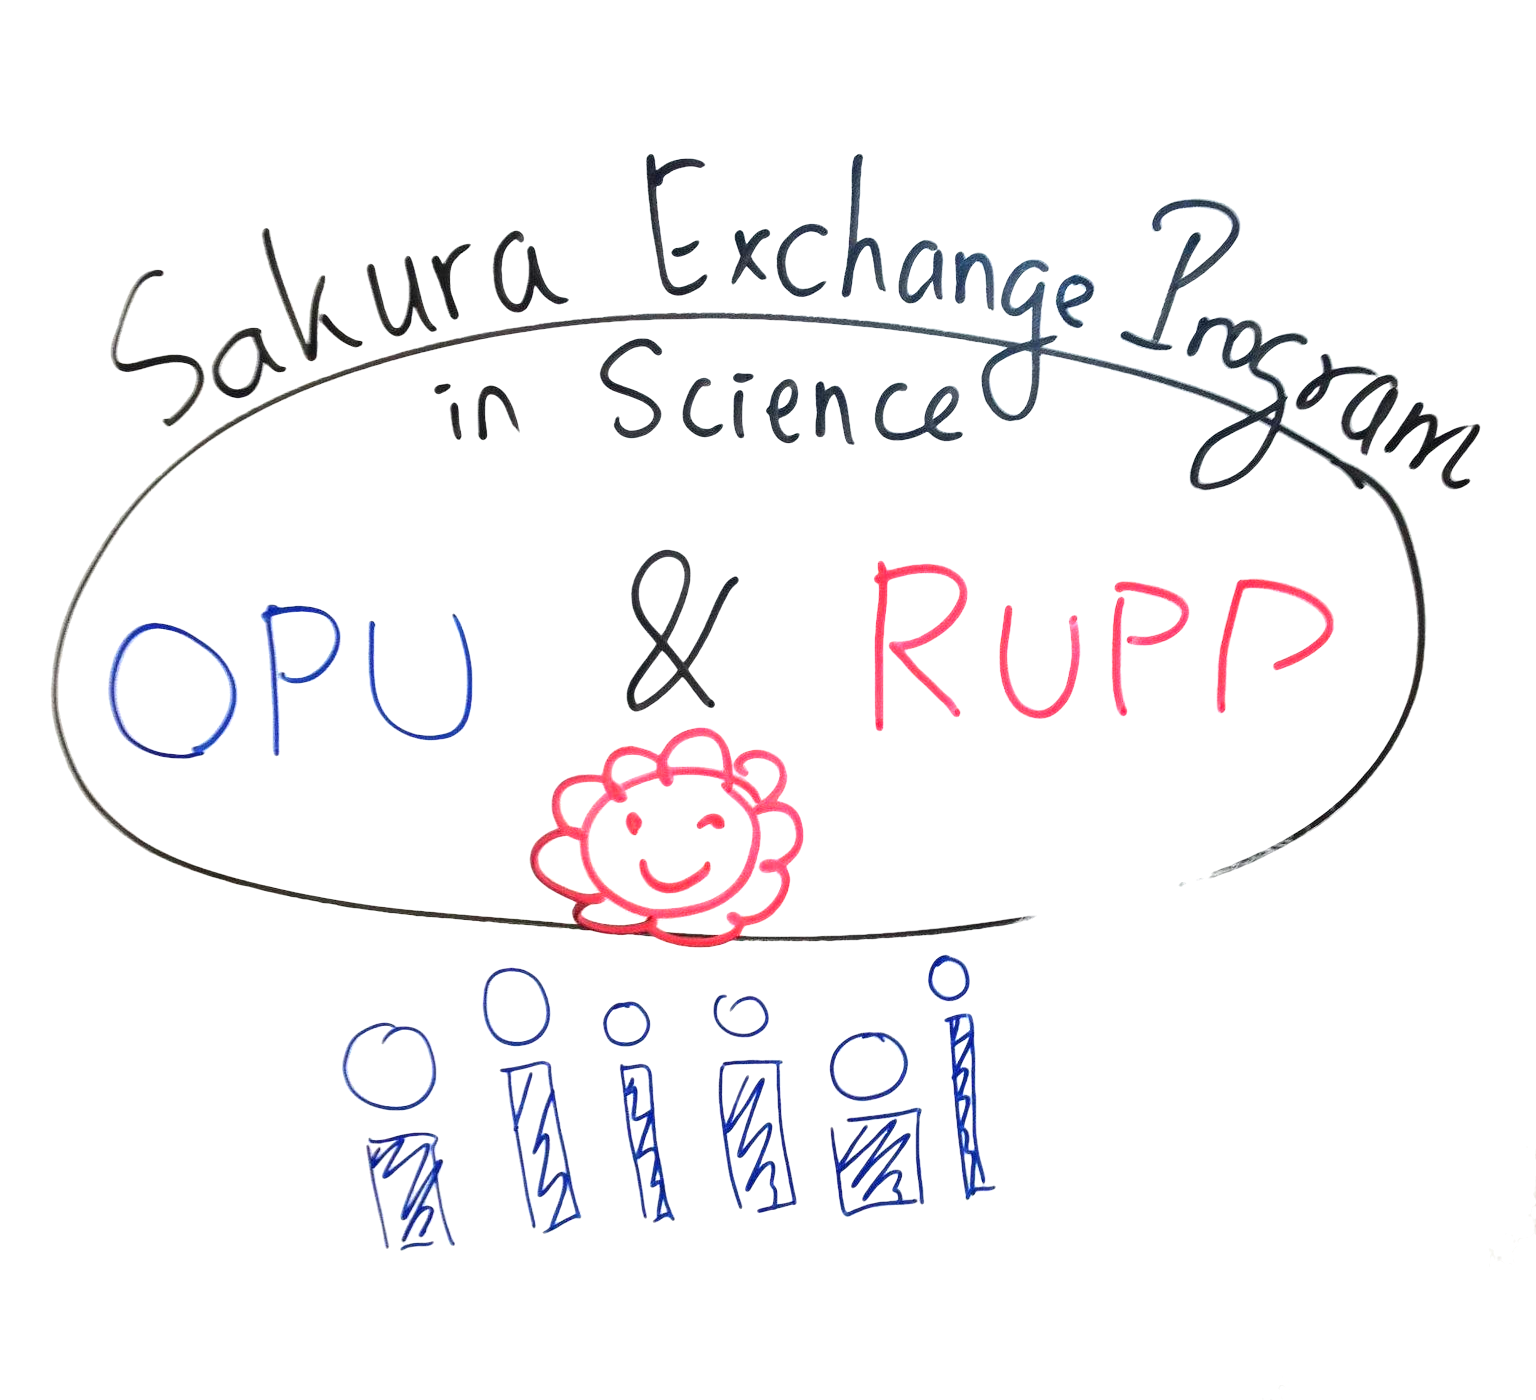 Sakura Exchange Program
in Science
OPU & RUPP